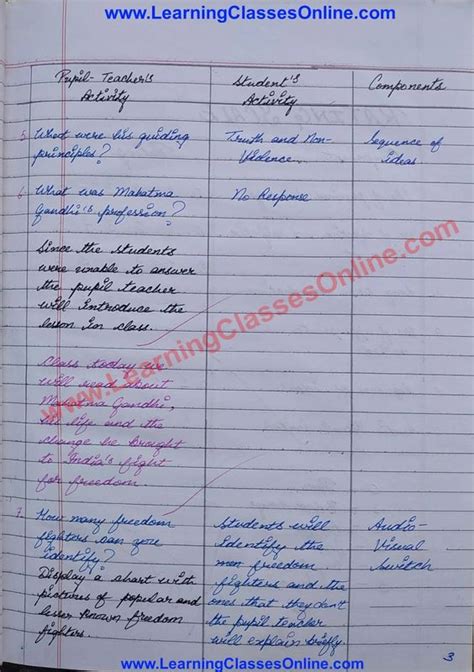 www.LearningClassesOnline.com
Pupil-Teacher's Activity
Student's Activity
Components
5. What were his guiding
principles?
Truth and Non-
Violence.
Sequence of
ideas.
6. What was Mahatma
Gandhi's profession?
No Response
Since the students
were unable to answer
the pupil teacher
will introduce the
lesson in class.
www.LearningClassesOnline.com
Class today we
will read about
Mahatma Gandhi,
his life and the
change he brought
to India's fight
for freedom.
7. How many freedom
fighters can you
identify?
Display a chart with
pictures of popular and
lesser known freedom
fighters.
Students will
identify the
men freedom
fighters and the
ones that they don't
the pupil teacher
will explain briefly
Audio-
Visual
Switch
3
www.LearningClassesOnline.com